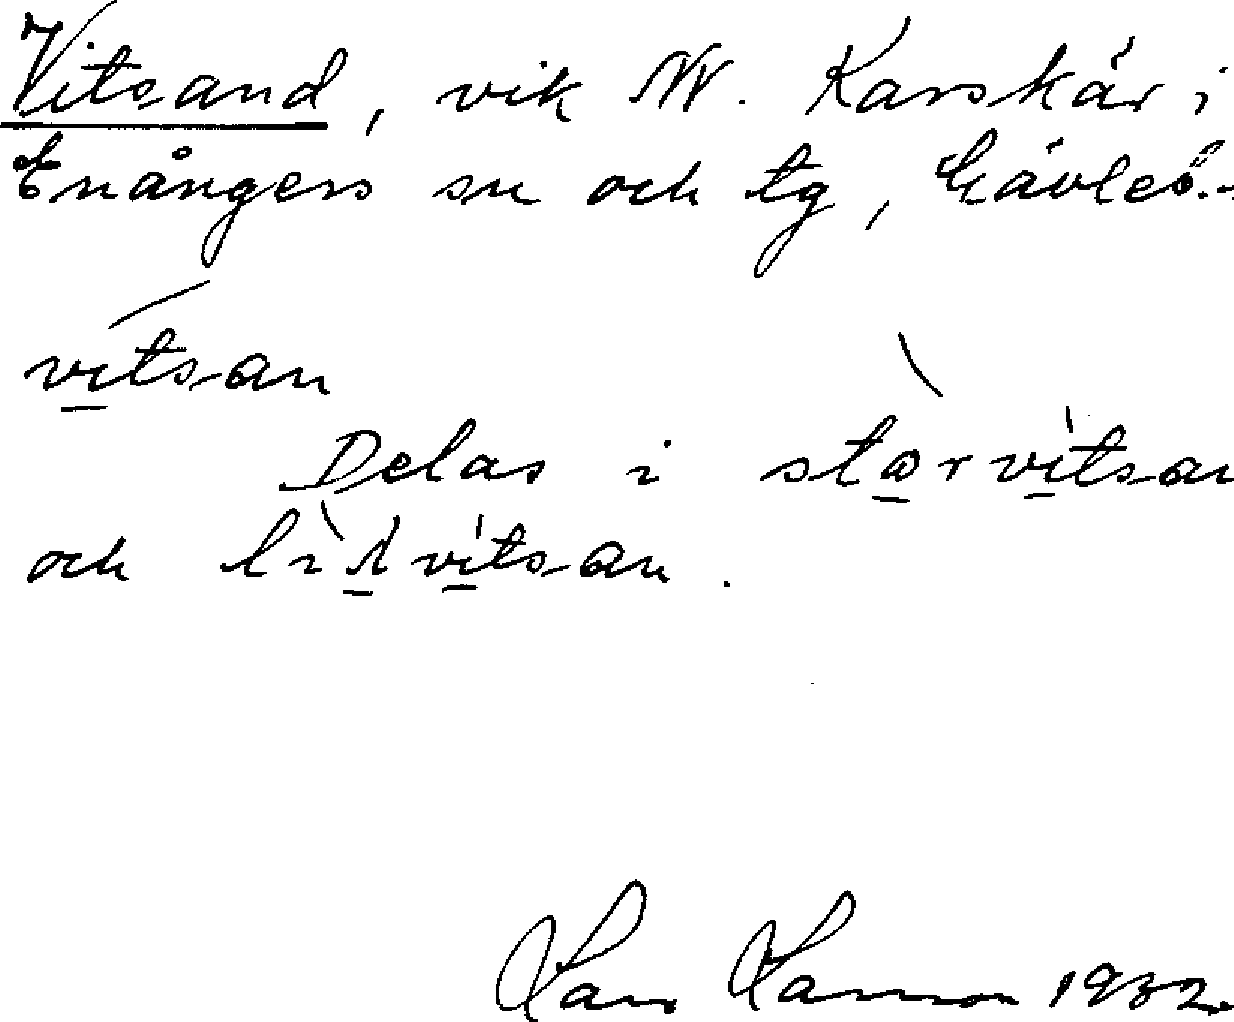 Vitsand, vik NV. Karskär i
Enångers sn och tg, Gävleb.
vitsan
Delas i storvitsan
och lilvitsan.
Lars Larsson 1932.